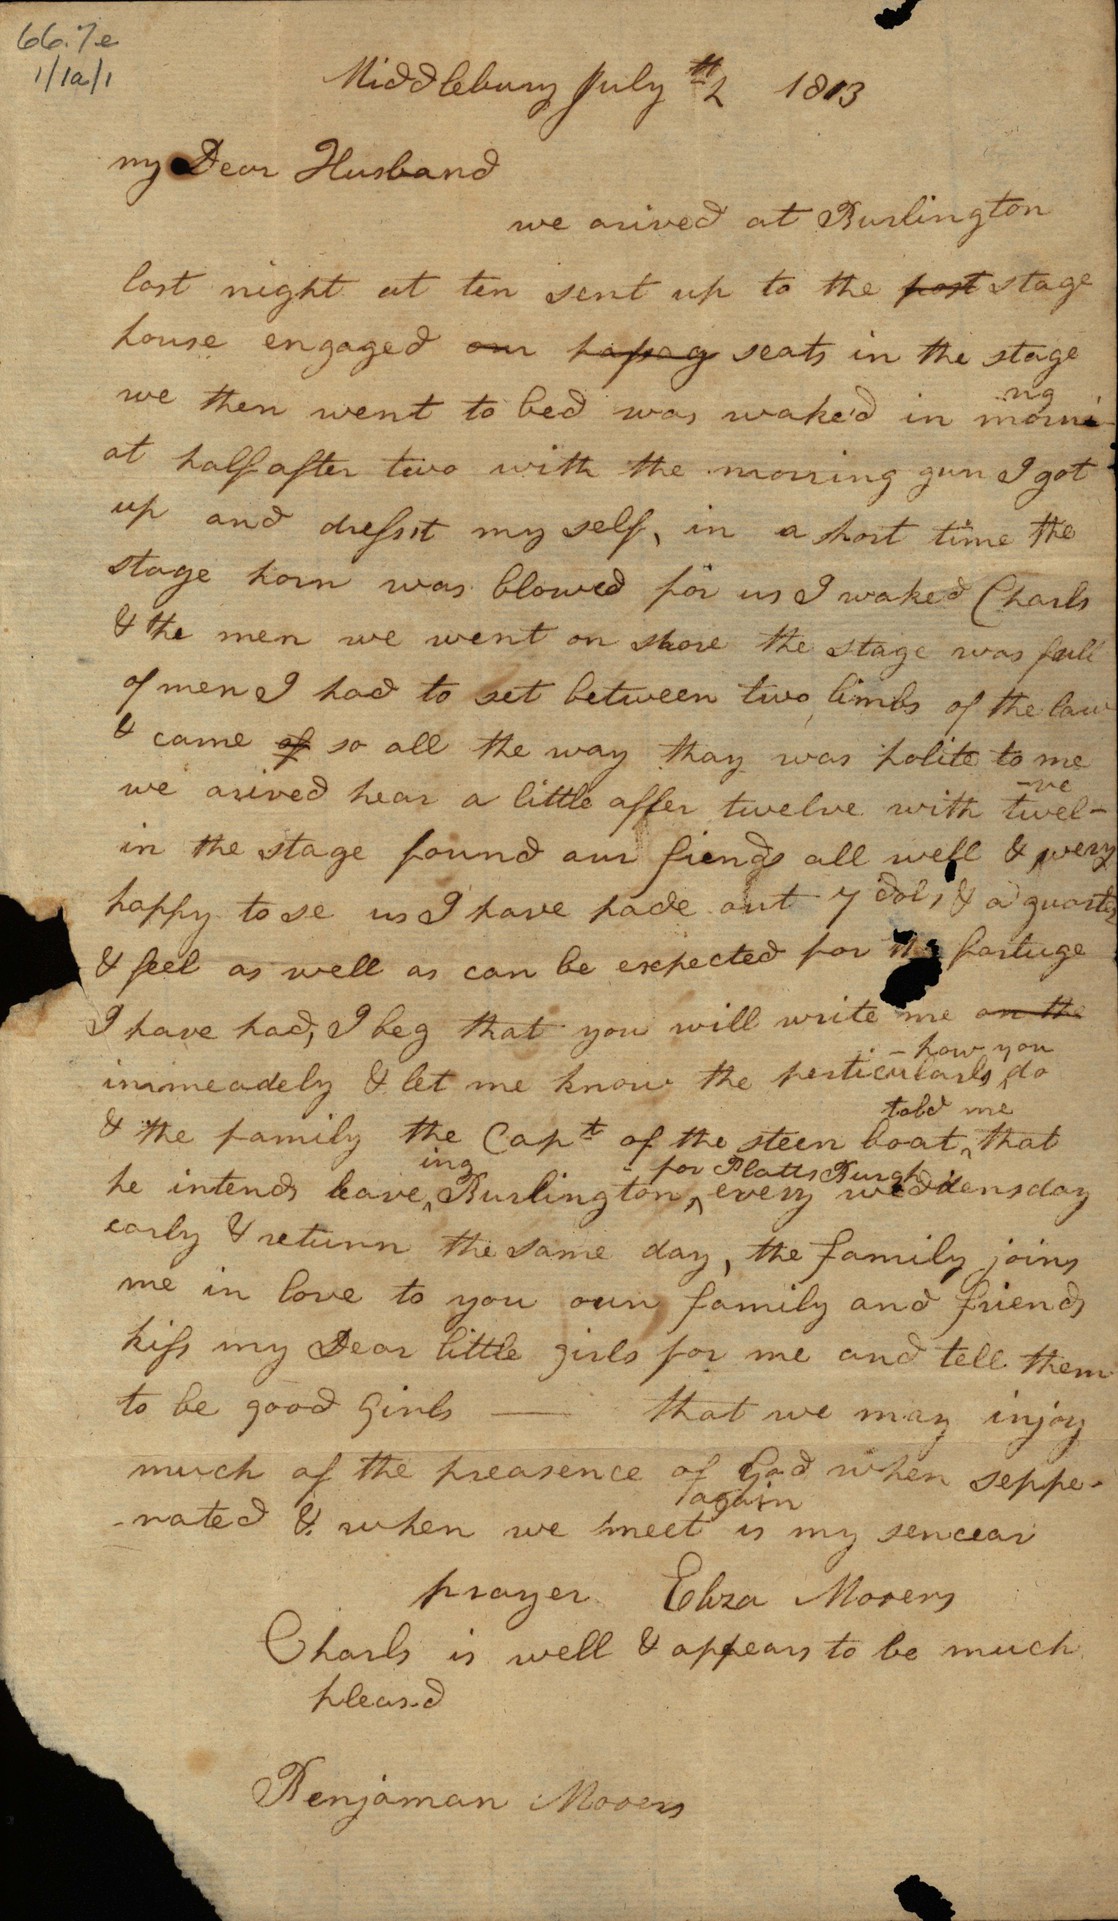 66.7e
1/1a/1
Middlebury July 2th 1813
my Dear Husband
we arived at Burlington
last night at ten sent up to the post stage
house engaged our passag seats in the stage
we then went to bed was waked in morni-
ng
at half after two with the morning gun I got
up and dressst my self, in a short time the
stage horn was blowed for us I waked Charls
& the men we went on shore the stage was full
of men I had to set between two limbs of the law
& came of so all the way thay was polite to me
we arived hear a little affer twelve with twel-
-ve
in the stage found our fiends all well & very
happy to se us I have pade out 7 dols & a quarter
& feel as well as can be expected for the fartuge
I have had, I beg that you will write me on the
immeadely & let me know the perticularls how you do
& the family the Capt of the steen boat told me that
he intends leaveing Burlington for PlattsBurgh every weddensday
early & return the same day, the family joins
me in love to you our family and friends
kiss my Dear little girls for me and tell them
to be good Girls — that we may injoy
much of the preasence of God when seppe-
-rated & when we meet again is my sencear
prayer Eliza Mooers
Charls is well & appears to be much
pleasd
Benjaman Mooers